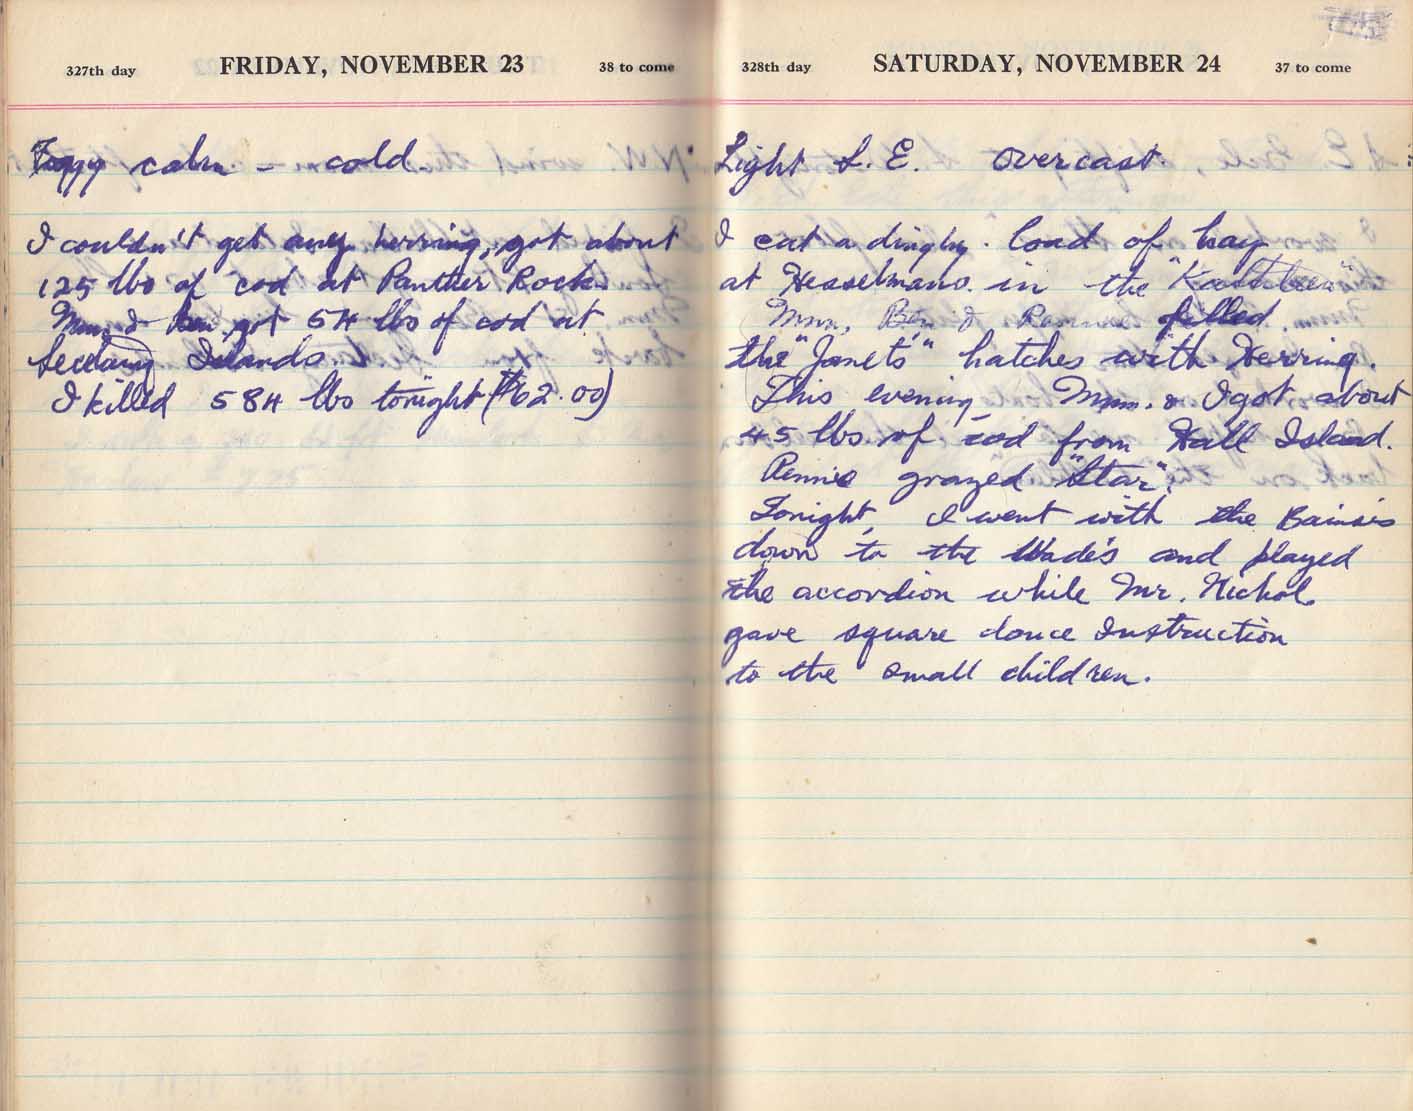 327th day FRIDAY, NOVEMBER 23 38 to come
Foggy calm - cold
I couldn't get any herring, got about
125 lbs of cod at Panther Rock.
Mum & Ben got 54 lbs of cod at
Secretary Islands.
I killed 584 lbs tonight ($62.00)
328th day SATURDAY, NOVEMBER 24 37 to come
Light S. E. overcast.
I cut a dinghy load of hay
at Hesselmans in the "Kathleen"
Mum, Ben & Rennie filled
the "Janet's" hatches with Herring.
This evening, Mum. & I got about
45 lbs. of cod from Hall Island.
Rennie grazed "Star".
Tonight, I went with the Bains's
down to the Wade's and played
the accordion while Mr. Nichol
gave square dance instruction
to the small children.